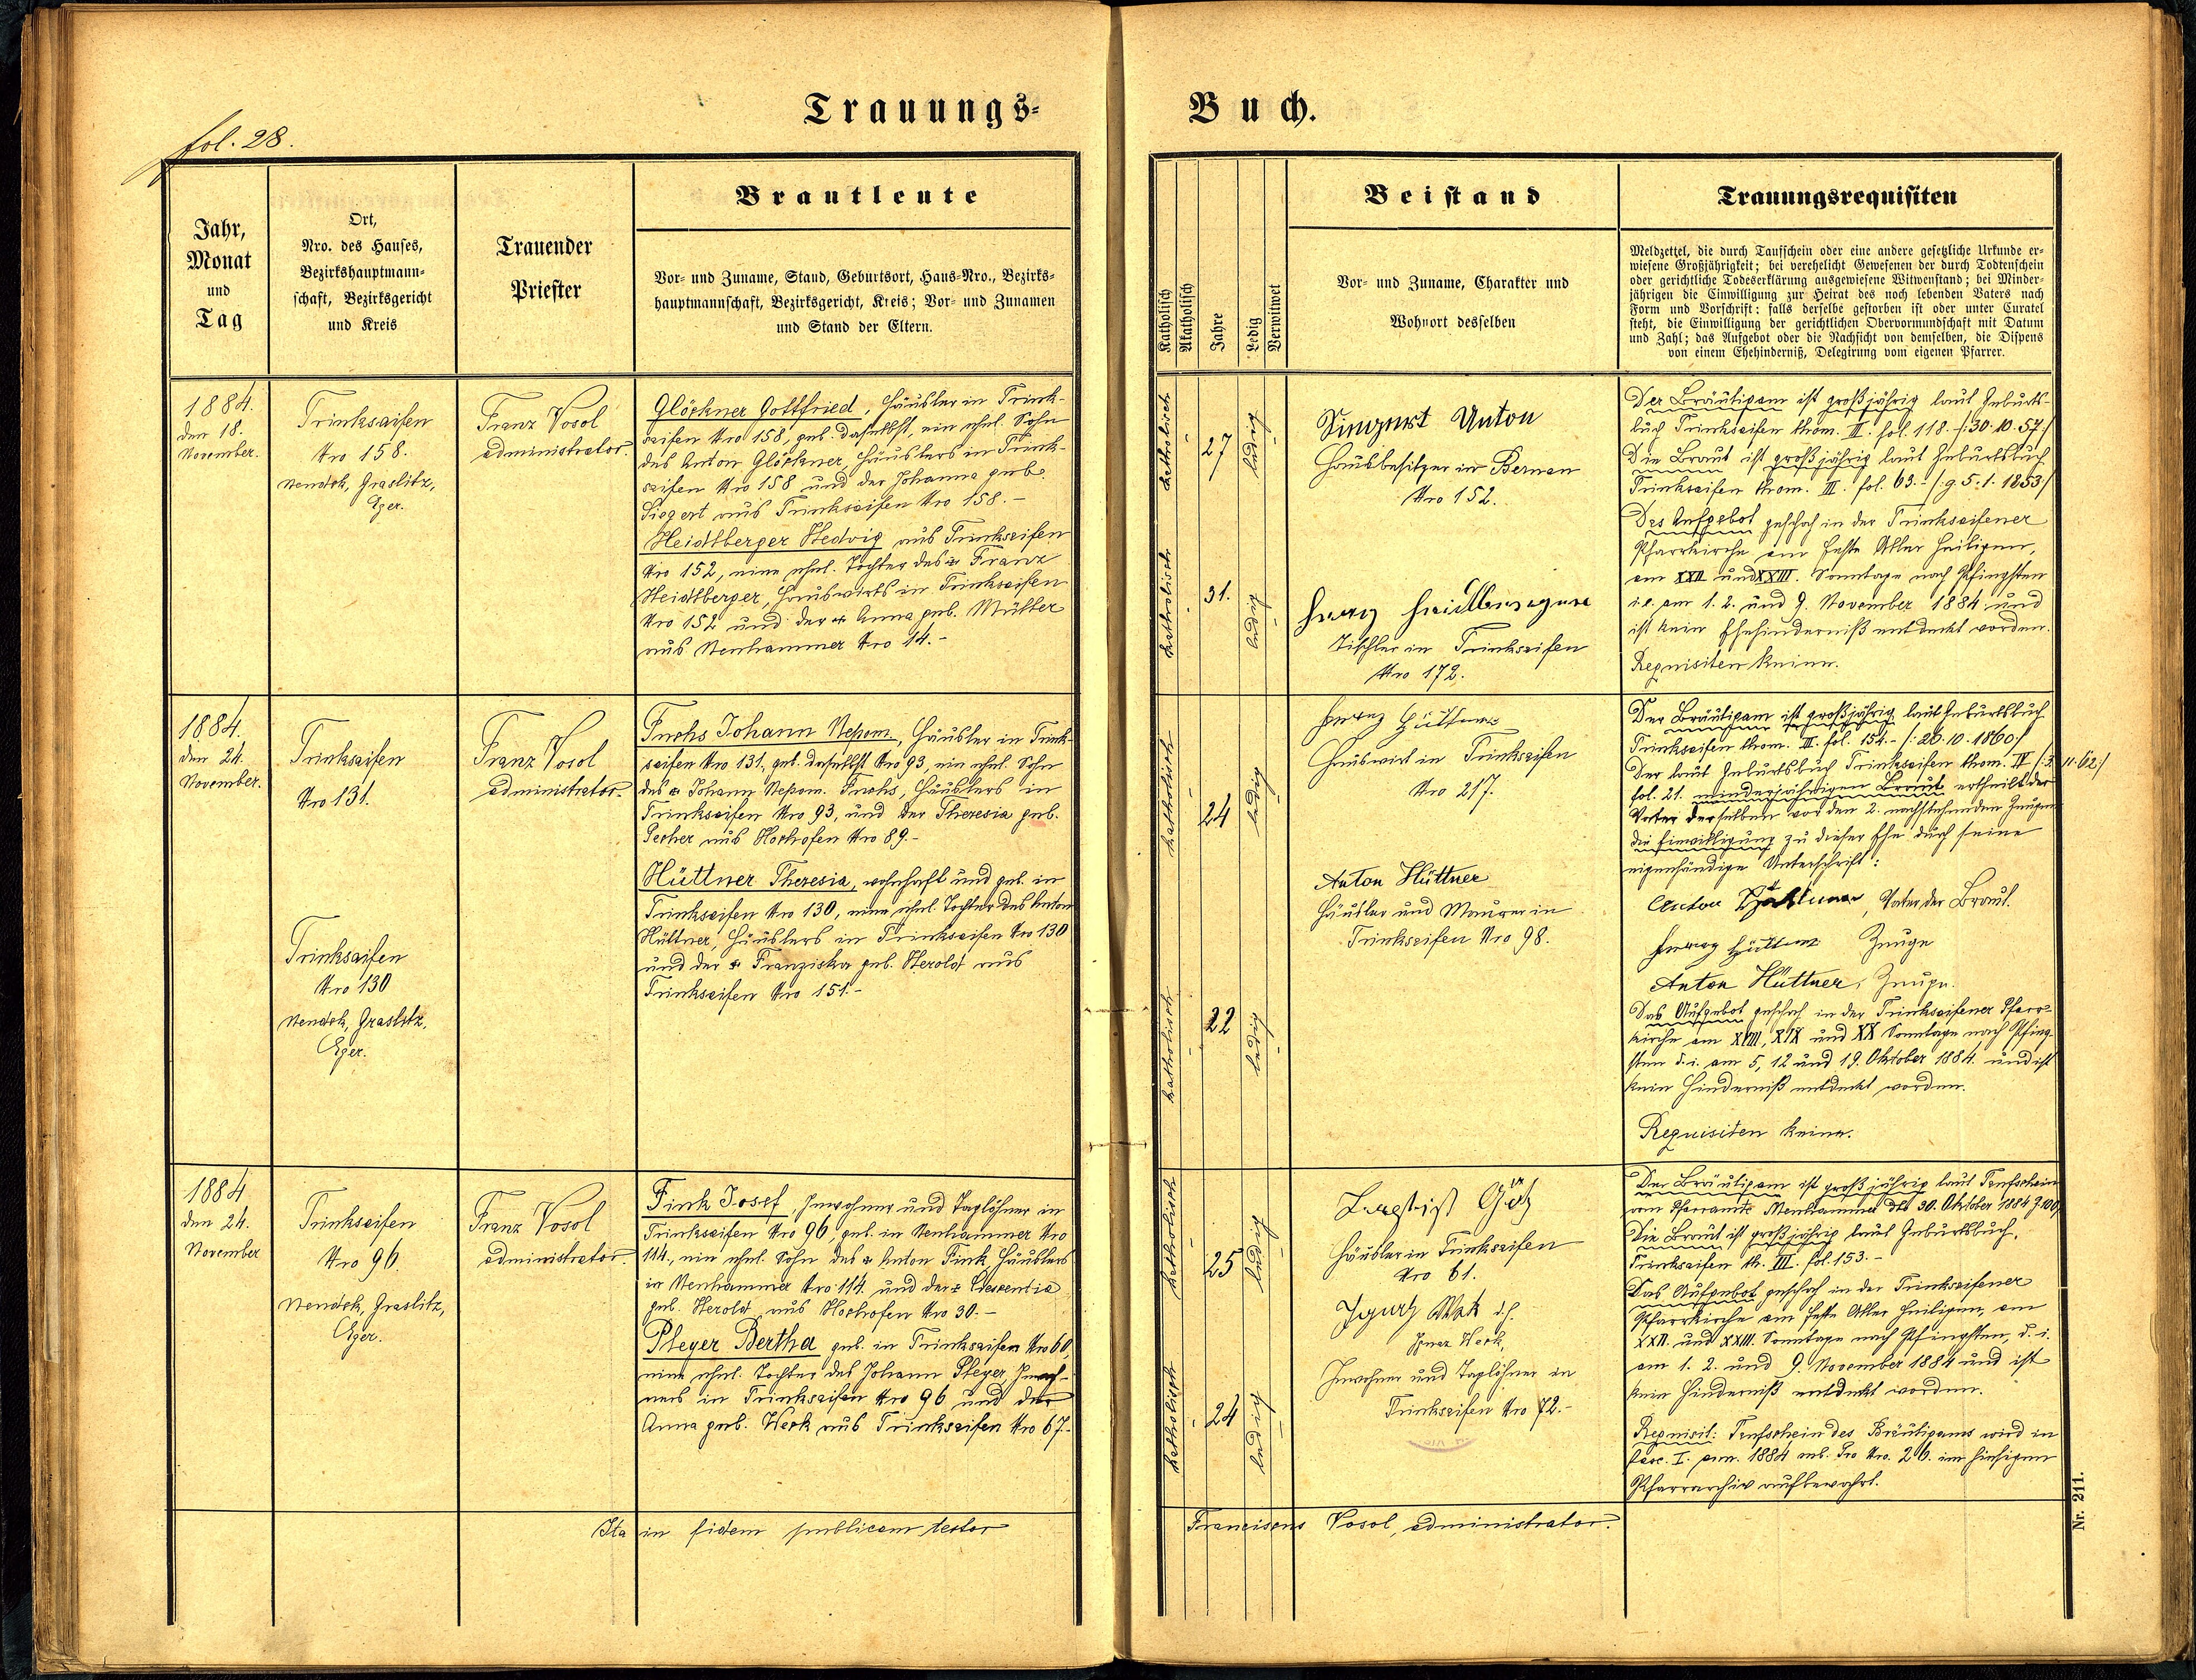 fol. 28.
Trauungs-
Jahr,
Monat
und
Tag
Ort,
Nro. des Hauses,
Bezirkshauptmann-
schaft, Bezirksgericht
und Kreis
Trauender
Priester
Brautleute
Vor- und Zuname, Stand, Geburtsort, Haus-Nro., Bezirks-
hauptmannschaft, Bezirksgericht, Kreis; Vor- und Zunamen
und Stand der Eltern.
1884.
den 18.
November.
Trinksaifen
Nro 158.
Neudek, Graslitz,
Eger.
Franz Vosol
administrator.
Glöckner Gottfried, Häusler in Trink-
saifen Nro 158, geb. daselbst, ein ehel. Sohn
des Anton Glöckner, Häuslers in Trink-
saifen Nro 158 und der Johanna geb.
Siegert aus Trinksaifen Nro 158.-
Heidlberger Hedwig aus Trinksaifen
Nro 152, eine ehel. Tochter des Franz
Heidlberger, Hauswirts in Trinksaifen
Nro 152 und der Anna geb. Müller
aus Neuhammer Nro 14.-
1884.
den 24.
November.
Trinksaifen
Nro 131.
Trinksaifen
Nro 130
Neudek, Graslitz,
Eger.
Franz Vosol
administrator.
Fuchs Johann Nepom., Häusler in Trink-
saifen Nro 131, geb. daselbst Nro 93, ein ehel. Sohn
des Johann Nepom. Fuchs, Häuslers in
Trinksaifen Nro 93, und der Theresia geb.
Pecher aus Hochofen Nro 89.-
Hüttner Theresia, wohnhaft und geb. in
Trinksaifen Nro 130, eine ehel. Tochter des Anton
Hüttner, Häuslers in Trinksaifen Nro 130
und der Franziska geb. Herold aus
Trinksaifen Nro 151.-
1884
den 24.
November
Trinksaifen
Nro 96.
Neudek, Graslitz,
Eger.
Franz Vosol
administrator.
Fink Josef, Inwohner und Taglöhner in
Trinksaifen Nro 96, geb. in Neuhammer Nro
114., ein ehel. Sohn des Anton Fink, Häuslers
in Neuhammer Nro 114. und der Crescentia
geb. Herold aus Hochofen Nro 30.-
Pleyer Bertha geb. in Trinksaifen Nro 60,
eine ehel. Tochter des Johann Pleyer, Inwoh-
ners in Trinksaifen Nro 96 und der
Anna geb. Werk aus Trinksaifen Nro 67.-
Ita in fidem publicam testor
Buch.
Katholisch
Akatholisch
Jahre
Ledig
Verwitwet
Beistand
Vor- und Zuname, Charakter und
Wohnort desselben
Trauungsrequisiten
Meldzettel, die durch Taufschein oder eine andere gesetzliche Urkunde er-
wiesene Großjährigkeit; bei verehelicht Gewesenen der durch Todtenschein
oder gerichtliche Todeserklärung ausgewiesene Witwenstand; bei Minder-
jährigen die Einwilligung zur Heirat des noch lebenden Vaters nach
Form und Vorschrift: falls derselbe gestorben ist oder unter Curatel
steht, die Einwilligung der gerichtlichen Obervormundschaft mit Datum
und Zahl; das Aufgebot oder die Nachsicht von demselben, die Dispens
von einem Ehehinderniß, Delegirung vom eigenen Pfarrer.
katholisch
27
ledig
katholisch
31.
ledig
Anton
Hausbesitzer in Bernau
Nro 152.
Franz
Tischler in Trinksaifen
Nro 172.
Der Bräutigam ist großjährig laut Geburts-
buch Trinksaifen thom. III. fol. 118. /:30.10.57:/
Die Braut ist großjährig laut Geburtsbuch
Trinksaifen thom. III. fol. 63.- /:g 5.1.1853:/
Das Aufgebot geschah in der Trinksaifener
Pfarrkirche am Feste Aller Heiligen,
am XXII und XXIII. Sonntage nach Pfingsten
i.e. am 1. 2. und 9. November 1884 und
ist kein Ehehinderniß entdeckt worden.
Requisiten keine.
katholisch
24
ledig
katholisch
22
ledig
Franz Hüttner
Hauswirt in Trinksaifen
Nro 217.
Anton Hüttner
Häusler und Maurer in
Trinksaifen Nro 98.
Der Bräutigam ist großjährig laut Geburtsbuch
Trinksaifen thom. III. fol. 154.- /:26.10.1860:/
Der laut Geburtsbuch Trinksaifen thom. IV /:3.11.62:/
fol. 21. minderjährigen Braut ertheilt der
Vater derselben vor den 2. nachstehenden Zeugen
die Einwilligung zu dieser Ehe durch seine
eigenhändige Unterschrift:
Anton Hüttner, Vater der Braut.
Franz Hüttner Zeuge
Anton Hüttner, Zeuge.
Das Aufgebot geschah in der Trinksaifener Pfarr-
kirche am XVIII, XIX und XX Sonntage nach Pfing-
sten d. i. am 5, 12 und 19. Oktober 1884. und ist
kein Hinderniß entdeckt worden.
Requisiten keine.
katholisch
25
ledig
katholisch
24
ledig
Götz
Häusler in Trinksaifen
Nro 61.
Ignatz Werk
Ignaz Werk,
Inwohner und Taglöhner in
Trinksaifen Nro 72.-
Der Bräutigam ist großjährig laut Taufschein
vom Pfarramte Neuhammer dto 30. Oktober 1884
Die Braut ist großjährig laut Geburtsbuch,
Trinksaifen th. III. fol. 153.-
Das Aufgebot geschah in der Trinksaifener
Pfarrkirche am Feste Aller Heiligen, am
XXII. und XXIII. Sonntage nach Pfingsten, d. i.
am 1. 2. und 9. November 1884 und ist
kein Hinderniß entdeckt worden.
Requisit: Taufschein des Bräutigams wird in
fasc. I. ann. 1884 sub. Nro. 26. im hiesigen
Pfarrarchiv aufbewahrt.
Franciscus Vosol, administrator.
Nr. 211.